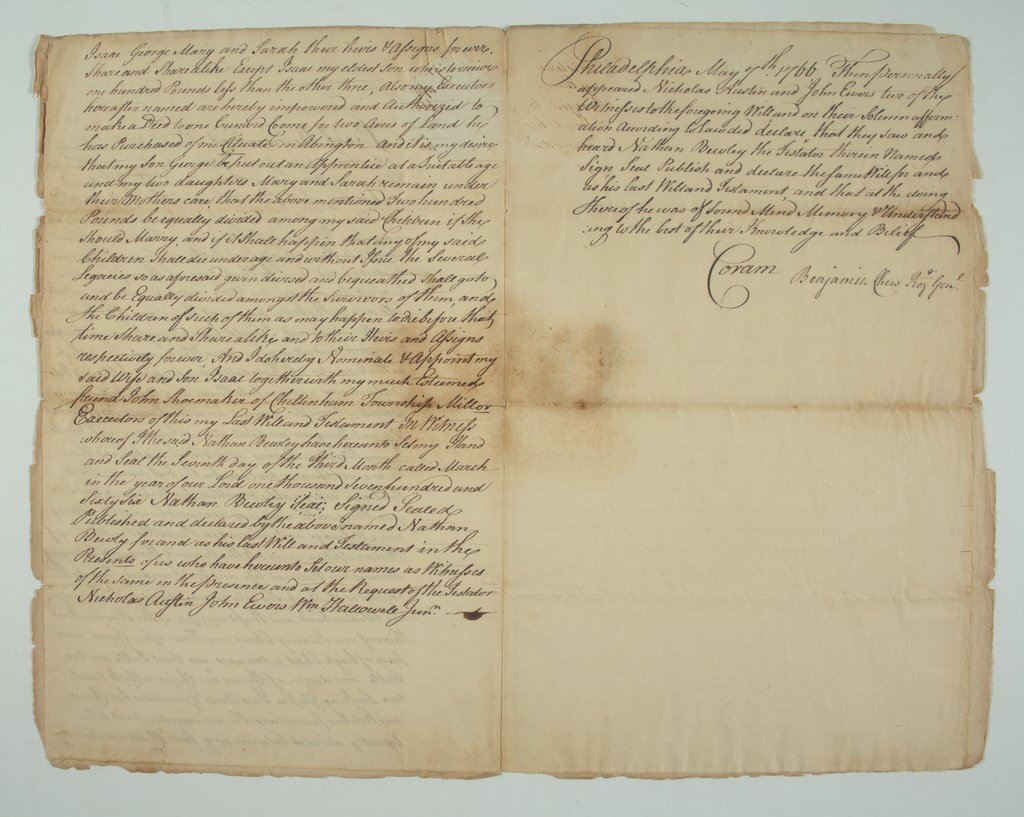 Isaac George Mary and Sarah their heirs & Assigns for ever,
Share and Share alike Except Isaac my eldest Son who is to receive
one hundred Pounds less than the other three, Also my Executors
hereafter named are hereby impowered and Authorized to
make a Deed to one Cunard Coome for two Acres of Land he
has Purchased of me Situate in Abington And it is my desire
that my Son George be put out an Apprentice at a Suitable age
and my two daughters Mary and Sarah remain under
their Mothers care, that the above mentioned Two hundred
Pounds be equally divided among my said Children if She
Should Marry, and if it Shall happen that any of my said
Children Shall die under age and without Issue the Several
Legacies so as aforesaid given divised and bequeathed Shall go to
and be Equally divided amongst the Survivors of them, and
the Children of such of them as may happen to die before that
time Share and Share alike and to their Heirs and Assigns
respectively for ever And I do hereby Nominate & Appoint my
said Wife and Son Isaac together with my much Esteemed
friend John Shoemaker of Cheltenham Township Miller
Executors of this my Last Will and Testament. In Witness
whereof I the said Nathan Bewley have hereunto Set my Hand
and Seal the Seventh day of the Third Month called March
in the year of our Lord one thousand Seven hundred and
Sixty Six Nathan Bewley :Seal: Signed Sealed
Published and declared by the above named Nathan
Bewly for and as his Last Will and Testament in the
Presents of us who have hereunto Set our names as Witnesses
of the same in the presence and at the Request of the Testator
Nicholas Austin John Ewers Wm. Hallowell Junr.
Philadelphia May 7th. 1766 Then personally
appeared Nicholas Austin and John Ewers two of the
Witnesses to the foregoing Will and on their Solemn affirm-
ation According to Law did declare that they saw and
heard Nathan Bewley the Testator therein Named
Sign Seal Publish and declare the same Will for and
as his last Will and Testament, and that at the doing
thereof he was of Sound Mind Memory & Understand
:ing to the best of their Knowledge and Belief
Coram Benjamin Chew Reg. Genl.